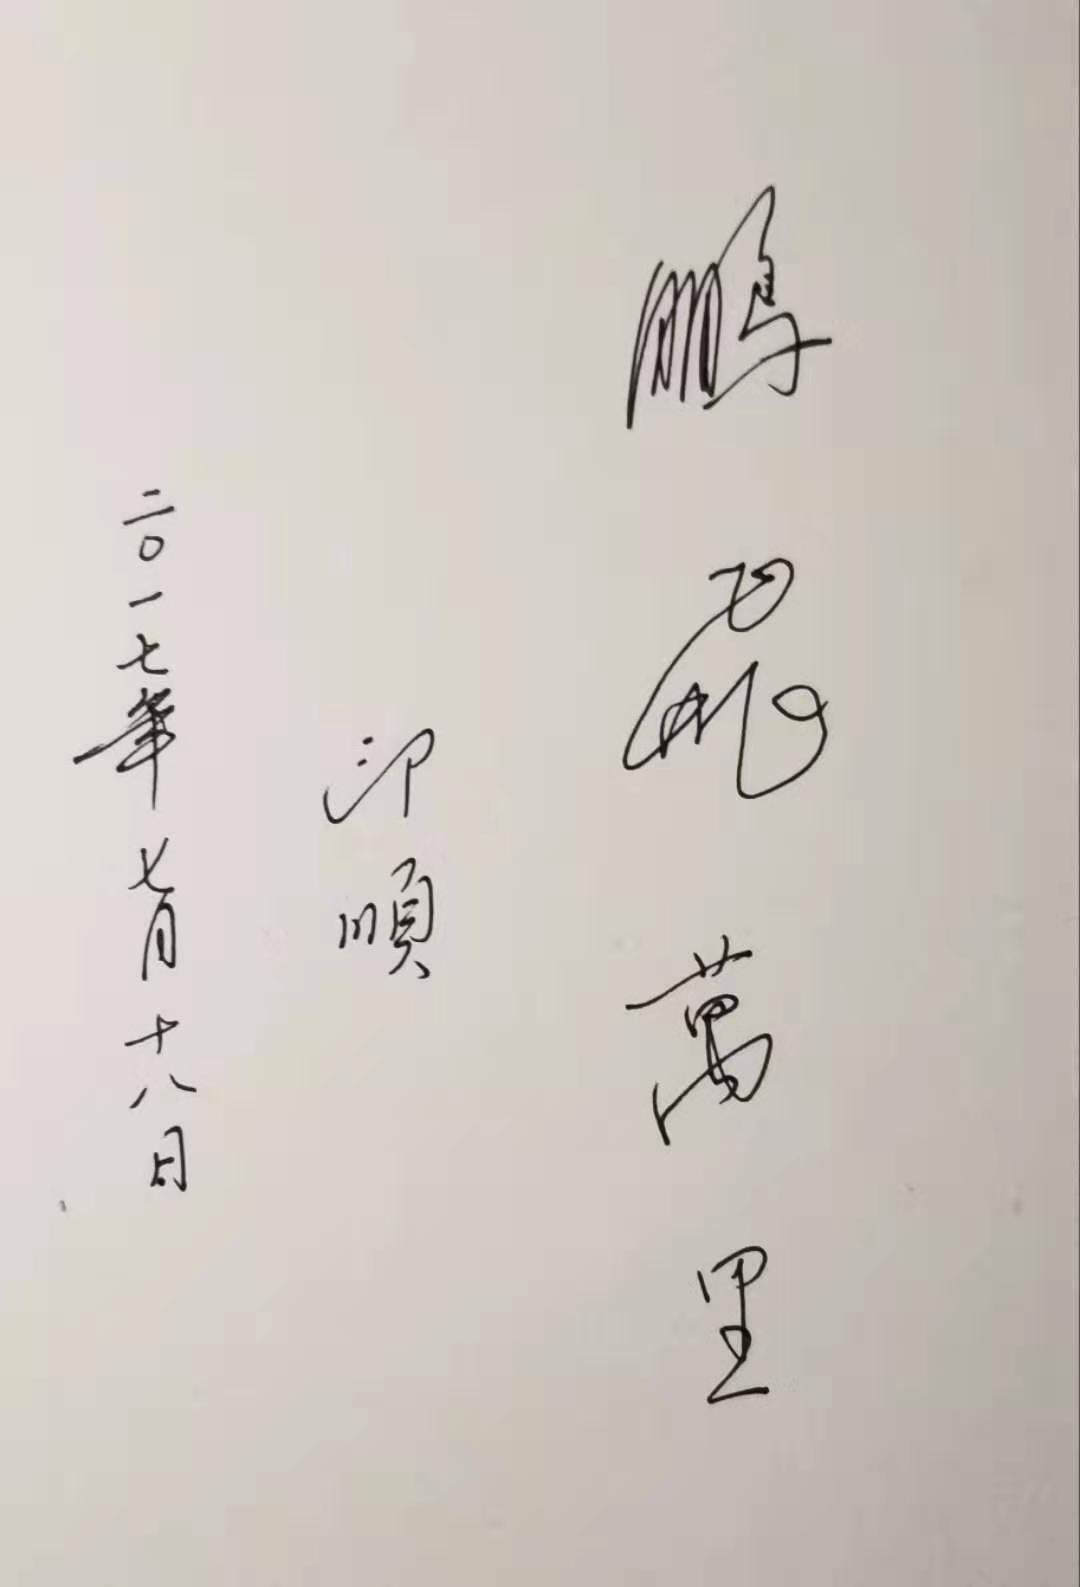 鵬飛萬里
印順
二〇一七年七月十八日